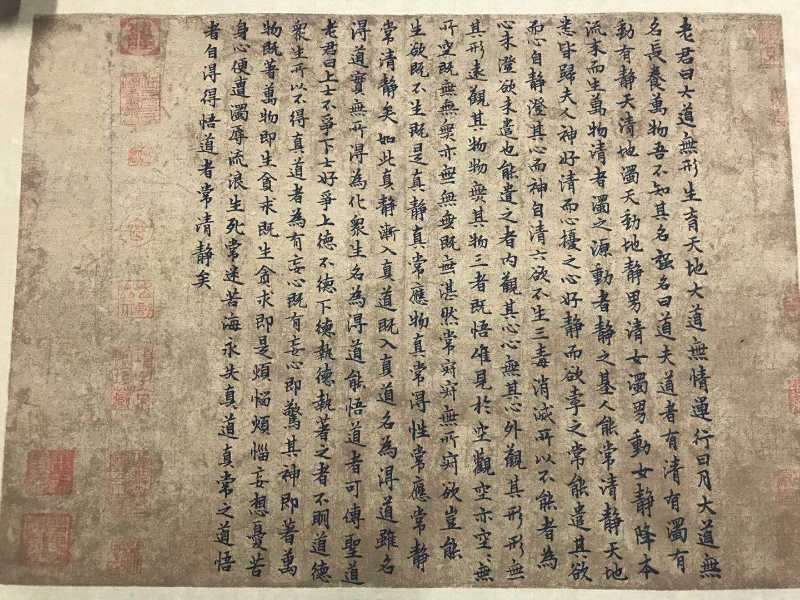 老君曰大道無形生育天地大道無情運行日月大道無
名長養萬物吾不知其名强名曰道夫道者有清有濁有
動有静天清地濁天動地静男清女濁男動女静降本
流末而生萬物清者濁之源動者静之基人能常清静天地
悉皆歸夫人神好清而心擾之心好静而欲牽之常能遣其欲
而心自静澄其心而神自清六欲不生三毒消滅所以不能者為
心未澄欲未遣也能遣之者内觀其心心無其心外觀其形形無
其形遠觀其物物無其物三者既悟唯見於空觀空亦空無
所空既無無無亦無無無既無湛然常寂寂無所寂欲豈能
生欲既不生既是真静真常應物真常得性常應常静
常清静矣如此真静漸入真道既入真道名為得道雖名
得道實無所得為化衆生名為得道能悟道者可傳聖道
老君曰上士不爭下士好爭上德不德下德執德執著之者不明道德
衆生所以不得真道者為有妄心既有妄心即驚其神即著萬
物既著萬物即生貪求既生貪求即是煩惱煩惱妄想憂苦
身心便遭濁辱流浪生死常迷苦海永失真道真常之道悟
者自得得悟道者常清静矣